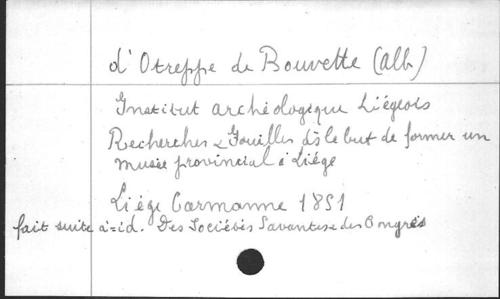 d'Otreppe de Bouvette (alb)
Institut archéologique Liégeois
Recherches & Fouilles ds le but de former un
musée provincial à Liége
Liége Carmanne 1851
fait suite à = id. Des Sociétés Savantes & des Congrès